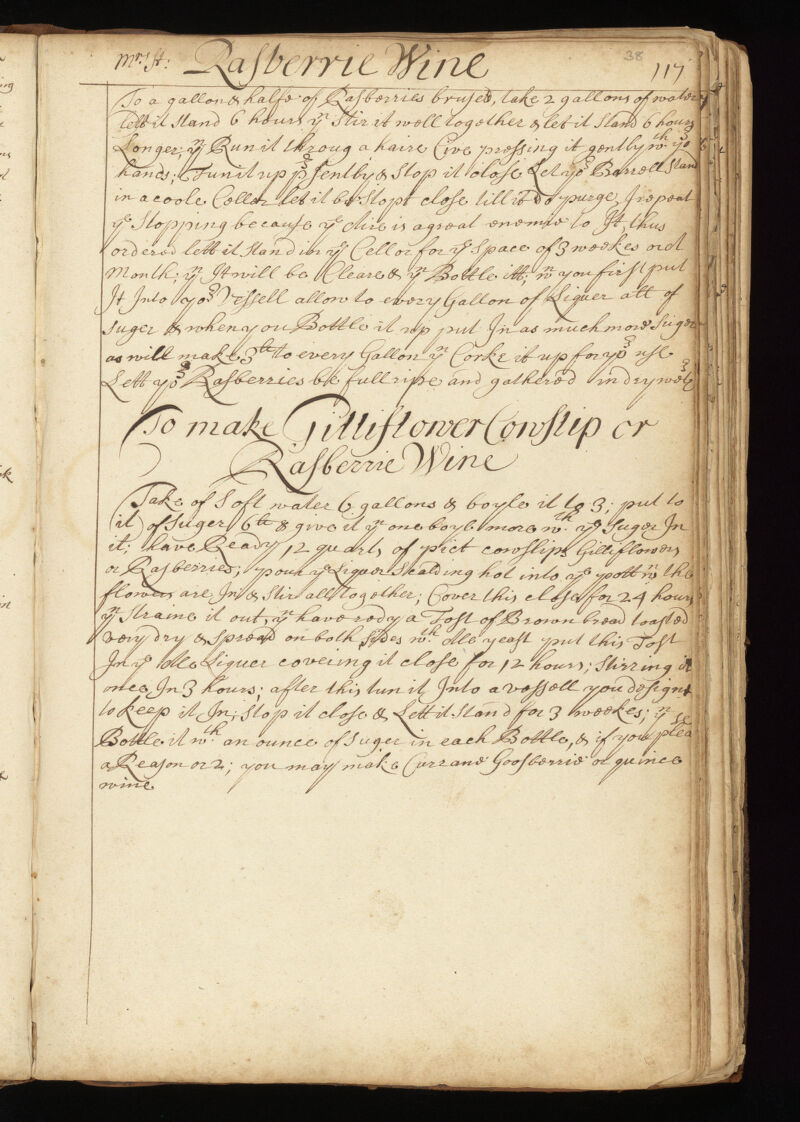 Mrs H: Rasberrie Wine 38 117
To a gallon & halfe of Rasberries brused, take 2 gallons of water
lett it stand 6 hours yn stir it well together & let it stand 6 hours
Longer; yn Run it throug a haire Cive pressing it gently wth yor
hands; Tun it up presently & stop it close Let yor Barrell stand
in a coole Cellor let it be stopt close till it do purge, I repeat
ye stopping because ye Aire is a great enemie to It, thus
ordered lett it stand in ye Cellor for ye space of 3 weekes or A
Month; yn It will be Cleare & yn Bottle itt; wn you first put
It Into yor Vessell allow to every Gallon of Liquer a tt of
suger & when you Bottle it up put In as much more suger
as will make 3tt to every Gallon yn Corke it up for yor use
Lett yor Rasberries be full ripe and gathered in dry wether
To make Gilliflower Cowslip or
Rasberrie Wine
Take of Soft water 6 gallons & boyle it to 3; put to
it of suger 6tt & give it yn one boyle more wth ye suger In
it; have Ready 12 quarts of pict cowslips Gilliflowers
or Rasberries; pour ye Liquer scalding hot into ye pott wn the
flowers are In & stir all together; Cover this close for 24 hours
yn straine it out; yn have redy a Tost of Brown bread toasted
very dry & spread on both sides wth Alle yeast put this Tost
In ye Liquer covering it close for 12 hours; stirring it
once In 3 hours; after this tun it Into a vessell you designe
to keep it In; stop it close & Lett it stand for 3 weekes; yn
Bottle it wth an ounce of suger in each Bottle, & if you please
a Reason or 2; you may make Currane Goosberrie or quince
wine